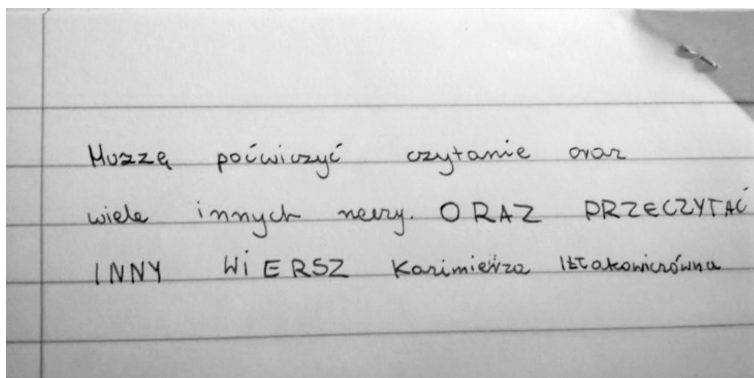 Muszę poćwiczyć czytanie oraz
wiele innych rzeczy. ORAZ PRZECZYTAĆ
INNY WIERSZ Kazimierza Iłłakowiczówna